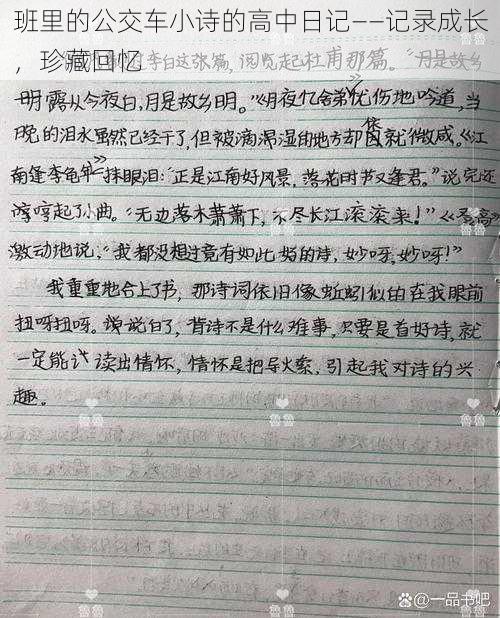 班里的公交车小诗的高中日记——记录成长
，珍藏回忆
李白这张篇，阅览起杜甫那篇。“月是故乡
明 露从今夜白，月是故乡明。”《月夜忆舍弟》忧伤地吟道，当
晚的泪水虽然已经干了，但被滴湿的地方却依旧就微咸。《江
南逢李龟年》一抹眼泪：“正是江南好风景，落花时节又逢君。”说完还
哼哼起了小曲。“无边落木萧萧下，不尽长江滚滚来！”《登高》
激动地说，“我都没想过竟有如此好的诗，妙呀，妙呀！”
我重重地合上了书，那诗词依旧像蚯蚓似的在我眼前
扭呀扭呀。说说白了，背诗不是什么难事，只要是首好诗，就
一定能让读出情怀，情怀是把导火索，引起我对诗的兴
趣。
鲁鲁
鲁鲁
鲁鲁
鲁鲁
鲁鲁
鲁鲁
@一品书吧